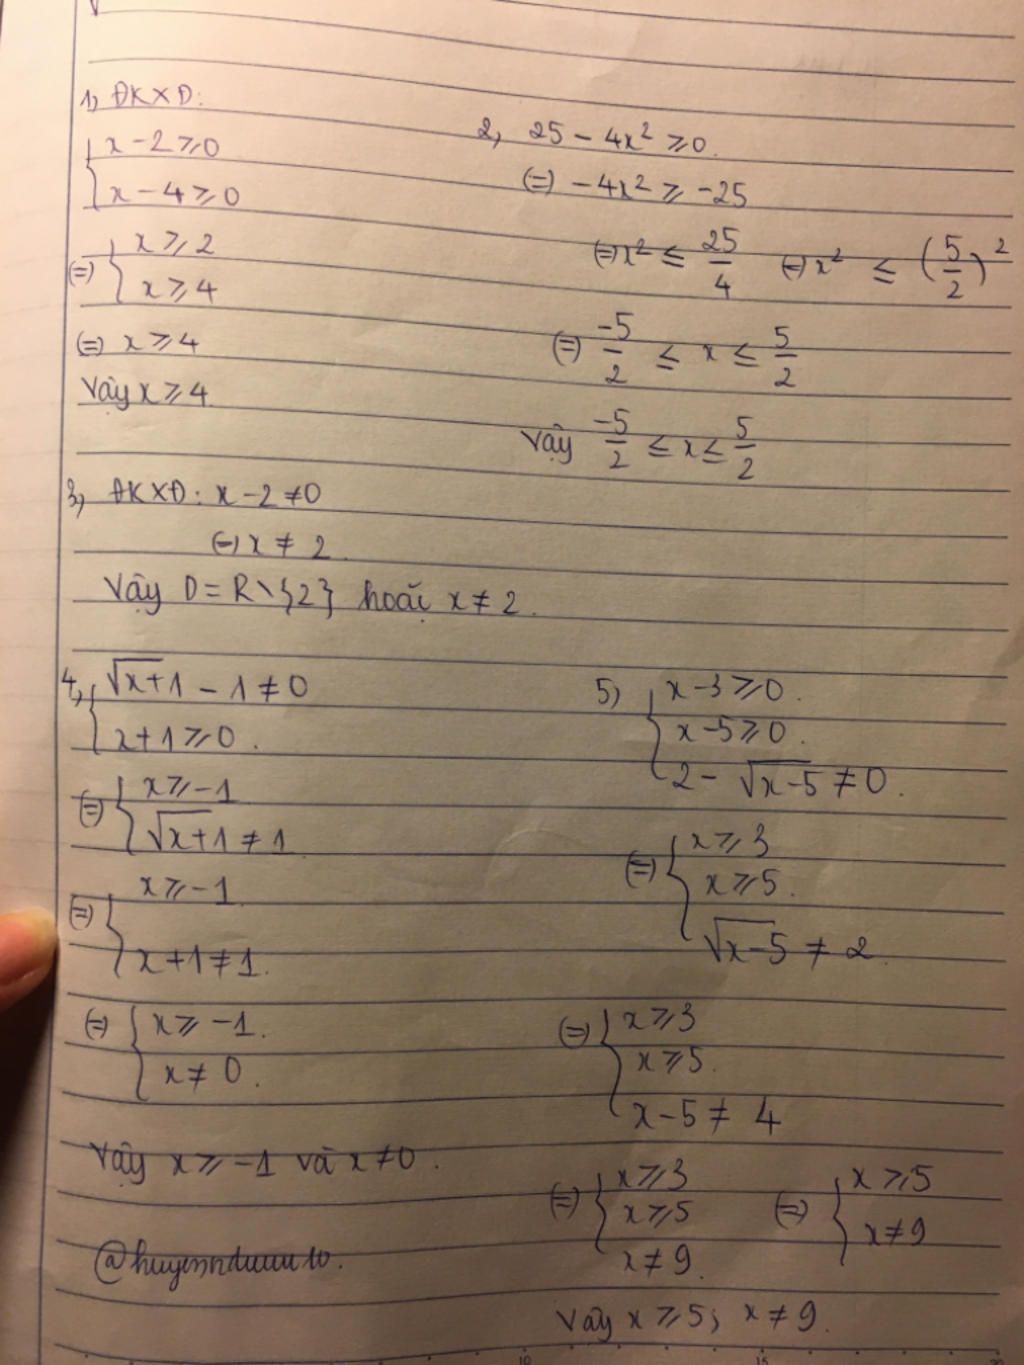 1, ĐKXĐ:
{ x - 2 ≥ 0
x - 4 ≥ 0
(=) { x ≥ 2
x ≥ 4
(=) x ≥ 4
Vậy x ≥ 4
2, 25 - 4x² ≥ 0.
(=) -4x² ≥ -25
(=) x² ≤ 25/4 (=) x² ≤ (5/2)²
(=) -5/2 ≤ x ≤ 5/2
Vậy -5/2 ≤ x ≤ 5/2
3, ĐKXĐ: x - 2 ≠ 0
(=) x ≠ 2.
Vậy D = R \ {2} hoặc x ≠ 2.
4, { √x+1 - 1 ≠ 0
x + 1 ≥ 0.
(=) { x ≥ -1
√x+1 ≠ 1
(=) { x ≥ -1
x + 1 ≠ 1.
(=) { x ≥ -1.
x ≠ 0.
Vậy x ≥ -1 và x ≠ 0.
5) { x - 3 ≥ 0.
x - 5 ≥ 0.
2 - √x-5 ≠ 0.
(=) { x ≥ 3
x ≥ 5.
√x-5 ≠ 2
(=) { x ≥ 3
x ≥ 5.
x - 5 ≠ 4
(=) { x ≥ 3
x ≥ 5
x ≠ 9.
(=) { x ≥ 5
x ≠ 9
Vậy x ≥ 5; x ≠ 9.
10 15 20